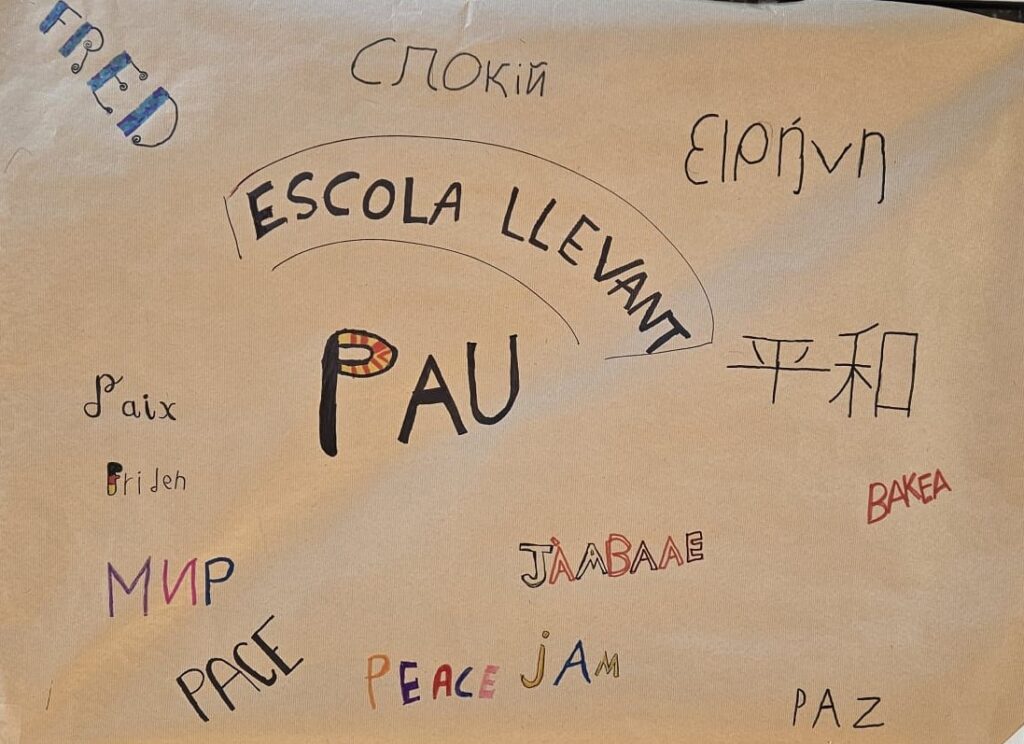 FRED
СПОКІЙ
ειρήνη
ESCOLA LLEVANT
PAU
平和
Paix
Frideh
BAKEA
МИР
JÀMBAAE
PACE
PEACE
jAM
PAZ